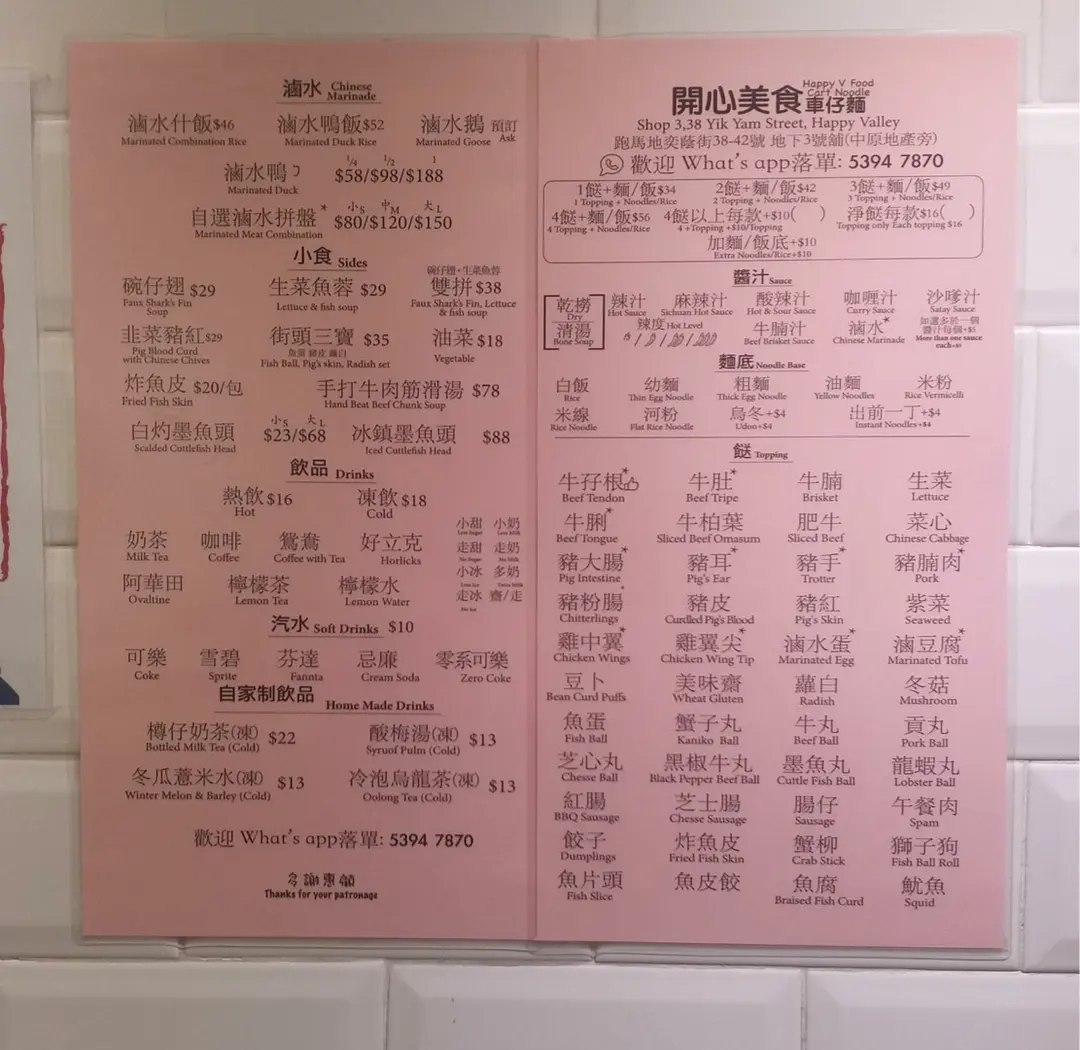 滷水 Chinese Marinade
滷水什飯$46 滷水鴨飯$52 滷水鵝 預訂
Marinated Combination Rice Marinated Duck Rice Marinated Goose Ask
滷水鴨 1/4 1/2 1
Marinated Duck $58/$98/$188
自選滷水拼盤* 小S 中M 大L
Marinated Meat Combination $80/$120/$150
小食 Sides
碗仔翅+生菜魚蓉
碗仔翅 $29 生菜魚蓉 $29 雙拼 $38
Faux Shark's Fin Soup Lettuce & fish soup Faux Shark's Fin, Lettuce & fish soup
韭菜豬紅$29 街頭三寶 $35 油菜 $18
Pig Blood Curd with Chinese Chives Fish Ball, Pig's skin, Radish set Vegetable
炸魚皮 $20/包 手打牛肉筋滑湯 $78
Fried Fish Skin Hand Beat Beef Chunk Soup
小S 大L
白灼墨魚頭 $23/$68 冰鎮墨魚頭 $88
Scalded Cuttlefish Head Iced Cuttlefish Head
飲品 Drinks
熱飲 $16 凍飲 $18
Hot Cold
奶茶 咖啡 鴛鴦 好立克
Milk Tea Coffee Coffee with Tea Horlicks
阿華田 檸檬茶 檸檬水
Ovaltine Lemon Tea Lemon Water
小甜 小奶
Less Sugar Less Milk
走甜 走奶
No Sugar No Milk
小冰 多奶
Less Ice Extra Milk
走冰 齋/走
No Ice
汽水 Soft Drinks $10
可樂 雪碧 芬達 忌廉 零系可樂
Coke Sprite Fannta Cream Soda Zero Coke
自家制飲品 Home Made Drinks
樽仔奶茶(凍) $22 酸梅湯(凍) $13
Bottled Milk Tea (Cold) Syruof Pulm (Cold)
冬瓜薏米水(凍) $13 冷泡烏龍茶(凍) $13
Winter Melon & Barley (Cold) Oolong Tea (Cold)
歡迎 What's app落單: 5394 7870
多謝惠顧
Thanks for your patronage
開心美食 Happy V Food Cart Noodle 車仔麵
Shop 3,38 Yik Yam Street, Happy Valley
跑馬地奕蔭街38-42號 地下3號舖(中原地產旁)
歡迎 What's app落單: 5394 7870
1餸+麵/飯$34 2餸+麵/飯$42 3餸+麵/飯$49
1 Topping + Noodles/Rice 2 Topping + Noodles/Rice 3 Topping + Noodles/Rice
4餸+麵/飯$56 4餸以上每款+$10( ) 淨餸每款$16( )
4 Topping + Noodles/Rice 4 +Topping +$10/Topping Topping only Each topping $16
加麵/飯底+$10
Extra Noodles/Rice+$10
醬汁 Sauce
乾撈 辣汁 麻辣汁 酸辣汁 咖喱汁 沙嗲汁
Dry Hot Sauce Sichuan Hot Sauce Hot & Sour Sauce Curry Sauce Satay Sauce
清湯 辣度 Hot Level 牛腩汁 滷水* 如選多於一個醬汁每個+$5
Bone Soup Beef Brisket Sauce Chinese Marinade More than one sauce each+$5
麵底 Noodle Base
白飯 幼麵 粗麵 油麵 米粉
Rice Thin Egg Noodle Thick Egg Noodle Yellow Noodles Rice Vermicelli
米線 河粉 烏冬+$4 出前一丁+$4
Rice Noodle Flat Rice Noodle Udon+$4 Instant Noodles+$4
餸 Topping
牛孖根* 牛肚* 牛腩 生菜
Beef Tendon Beef Tripe Brisket Lettuce
牛脷* 牛柏葉 肥牛 菜心
Beef Tongue Sliced Beef Omasum Sliced Beef Chinese Cabbage
豬大腸* 豬耳* 豬手* 豬腩肉*
Pig Intestine Pig's Ear Trotter Pork
豬粉腸 豬皮 豬紅 紫菜
Chitterlings Curdled Pig's Blood Pig's Skin Seaweed
雞中翼* 雞翼尖* 滷水蛋* 滷豆腐*
Chicken Wings Chicken Wing Tip Marinated Egg Marinated Tofu
豆卜 美味齋 蘿白 冬菇
Bean Curd Puffs Wheat Gluten Radish Mushroom
魚蛋 蟹子丸 牛丸 貢丸
Fish Ball Kaniko Ball Beef Ball Pork Ball
芝心丸 黑椒牛丸 墨魚丸 龍蝦丸
Chesse Ball Black Pepper Beef Ball Cuttle Fish Ball Lobster Ball
紅腸 芝士腸 腸仔 午餐肉
BBQ Sausage Chesse Sausage Sausage Spam
餃子 炸魚皮 蟹柳 獅子狗
Dumplings Fried Fish Skin Crab Stick Fish Ball Roll
魚片頭 魚皮餃 魚腐 魷魚
Fish Slice Braised Fish Curd Squid